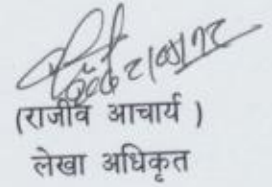 (राजीव आचार्य )
लेखा अधिकृत